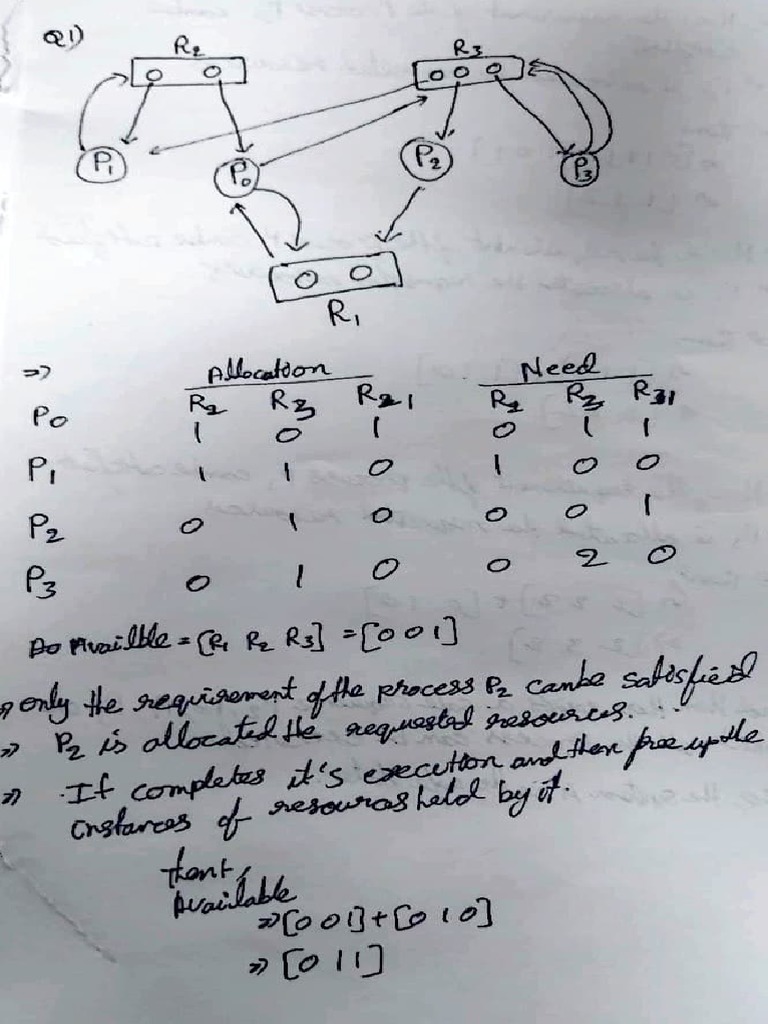 Q1)
R2 R3
P1 P0 P2 P3
R1
=> Allocation Need
R2 R3 R1 R2 R3 R1
P0 1 0 1 0 1 1
P1 1 1 0 1 0 0
P2 0 1 0 0 0 1
P3 0 1 0 0 2 0
Availlble = [R1 R2 R3] = [0 0 1]
=> only the requirement of the process P2 canbe satisfied
=> P2 is allocated the requested resources.
=> . If completes it's execution and then free up the
instances of resources held by it.
Available
=> [0 0 1] + [0 1 0]
=> [0 1 1]